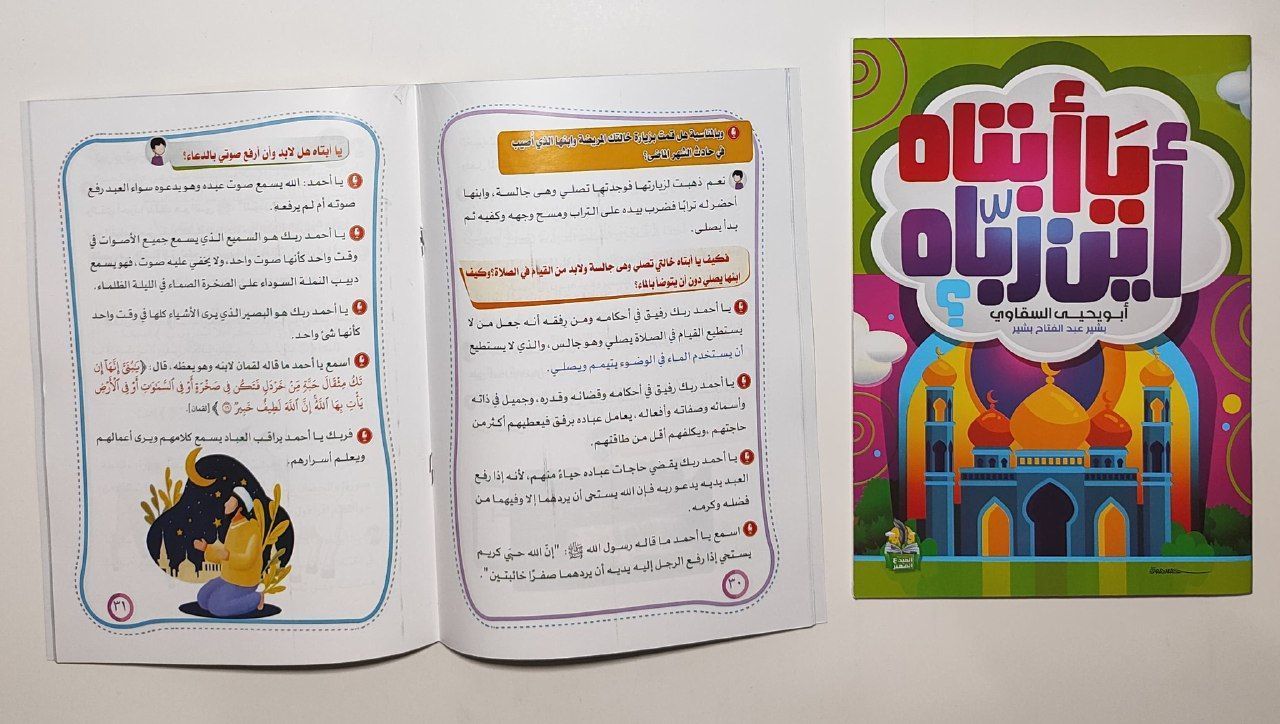 وبالمناسبة هل قمت بزيارة خالتك المريضة وابنها الذي أصيب
في حادث الشهر الماضي؟
نعم ذهبت لزيارتها فوجدتها تصلي وهى جالسة، وابنها
أحضر له ترابًا فضرب بيده على التراب ومسح وجهه وكفيه ثم
بدأ يصلى.
فكيف يا أبتاه خالتي تصلي وهى جالسة ولابد من القيام في الصلاة؟وكيف
ابنها يصلي دون أن يتوضأ بالماء؟
يـا أحمد ربـك رفيق في أحكامه ومن رفقه أنه جعل من لا
يستطيع القيام في الصلاة يصلي وهو جالس، والذي لا يستطيع
أن يستخدم الماء في الوضوء يتيمم ويصلي.
يـا أحمد ربـك رفيق في أحكامه وقضائه وقدره، وجميل في ذاته
وأسمائه وصفاته وأفعاله، يعامل عباده برفق فيعطيهم أكثر من
حاجتهم ،ويكلفهم أقل من طاقتهم.
يـا أحمد ربـك يقضي حاجات عباده حياءً منهم، لأنه إذا رفع
العبد يديه يدعو ربه فإن الله يستحى أن يردهما إلا وفيهما من
فضله وكرمه.
اسمع يا أحمد ما قاله رسول الله ﷺ: "إنّ الله حيي كريم
يستحي إذا رفع الرجل إليه يديه أن يردهما صفرًا خائبتين".
٣٠
يا أبتاه هل لابد وأن أرفع صوتي بالدعاء؟
يـا أحمد: الله يسمع صوت عبده وهو يدعوه سواء العبد رفع
صوته أم لم يرفعه.
يـا أحمد ربـك هو السميع الذي يسمع جميع الأصوات في
وقت واحد كأنها صوت واحد، ولا يخفي عليه صوت، فهو يسمع
دبيب النملة السوداء على الصخرة الصماء في الليلة الظلماء.
يـا أحمد ربـك هو البصير الذي يرى الأشياء كلها في وقت واحد
كأنها شئ واحد.
اسمع يا أحمد ما قاله لقمان لابنه وهو يعظه، قال: ﴿يَٰبُنَيَّ إِنَّهَآ إِن
تَكُ مِثْقَالَ حَبَّةٍ مِّنْ خَرْدَلٍ فَتَكُن فِي صَخْرَةٍ أَوْ فِي السَّمَٰوَٰتِ أَوْ فِي الْأَرْضِ
يَأْتِ بِهَا اللَّهُ إِنَّ اللَّهَ لَطِيفٌ خَبِيرٌ﴾ [لقمان].
فربك يا أحمد يراقب العباد يسمع كلامهم ويرى أعمالهم
ويعلم أسرارهم.
٣١
يَا أبتاه
أين ربّاه
؟
أبو يحيى السقاوي
بشير عبد الفتاح بشير
المبدع
الصغير